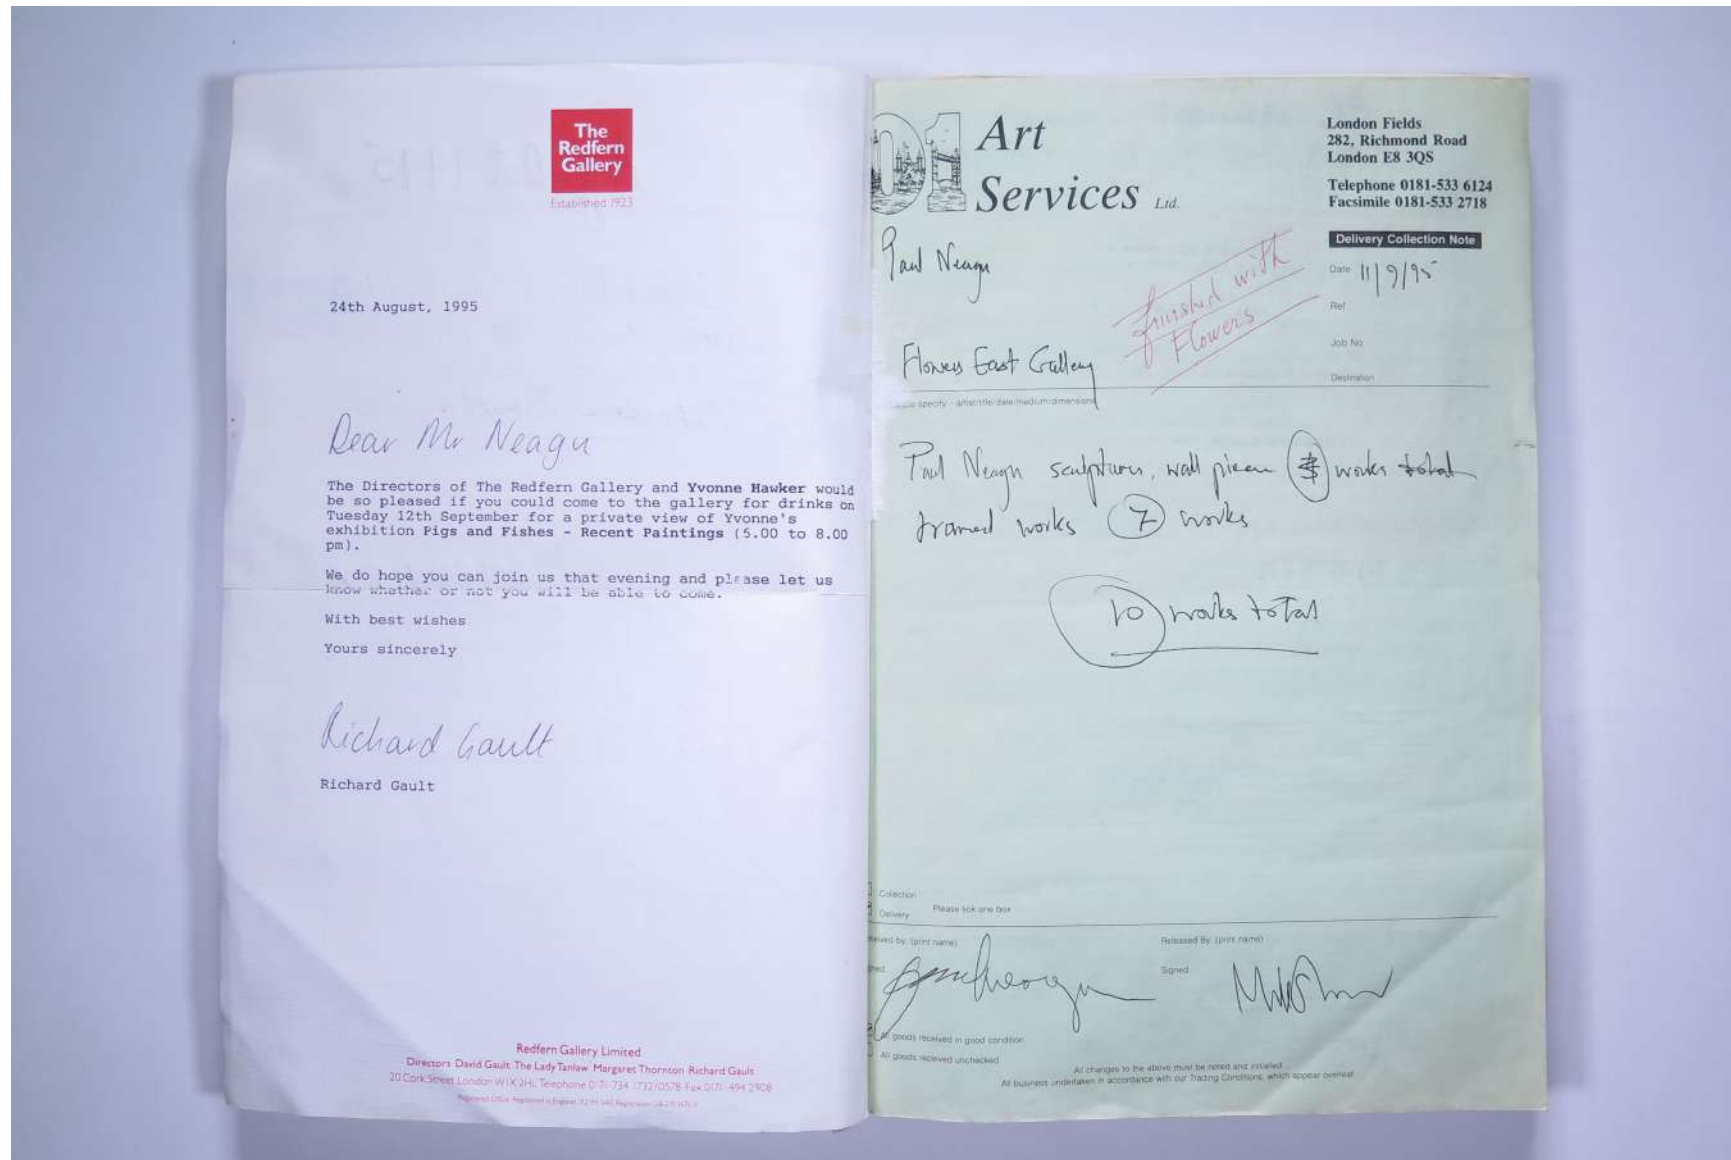 The
Redfern
Gallery
Established 1923
24th August, 1995
Dear Mr Neagu
The Directors of The Redfern Gallery and Yvonne Hawker would
be so pleased if you could come to the gallery for drinks on
Tuesday 12th September for a private view of Yvonne's
exhibition Pigs and Fishes - Recent Paintings (5.00 to 8.00
pm).
We do hope you can join us that evening and please let us
know whether or not you will be able to come.
With best wishes
Yours sincerely
Richard Gault
Richard Gault
Redfern Gallery Limited
Directors David Gault The Lady Tanlaw Margaret Thornton Richard Gault
20 Cork Street London W1X 2HL Telephone 0171-734 1732/0578 Fax 0171-494 2908
01 Art
Services Ltd.
London Fields
282, Richmond Road
London E8 3QS
Telephone 0181-533 6124
Facsimile 0181-533 2718
Delivery Collection Note
Paul Neagu
finished with
Flowers
Date 11/9/95
Ref
Job No
Flowers East Gallery
Destination
specify - artist/title/date/medium/dimensions
Paul Neagu sculptures, wall pieces works total
framed works 7 works
10 works total
Collection
Delivery Please tick one box
by: (print name)
Released By: (print name)
Signed
All goods received in good condition
All goods received unchecked
All changes to the above must be noted and initialled
All business undertaken in accordance with our Trading Conditions, which appear overleaf